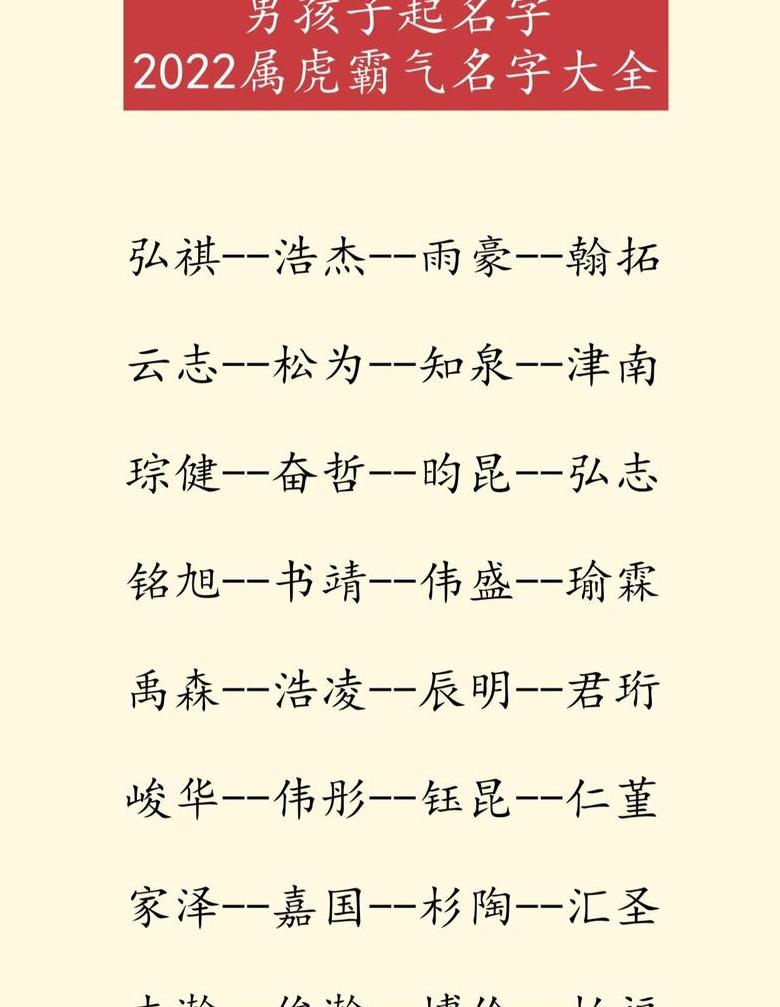 男孩子起名字
2022属虎霸气名字大全
弘祺--浩杰--雨豪--翰拓
云志--松为--知泉--津南
琮健--奋哲--昀昆--弘志
铭旭--书靖--伟盛--瑜霖
禹森--浩凌--辰明--君珩
峻华--伟彤--钰昆--仁堇
家泽--嘉国--杉陶--汇圣